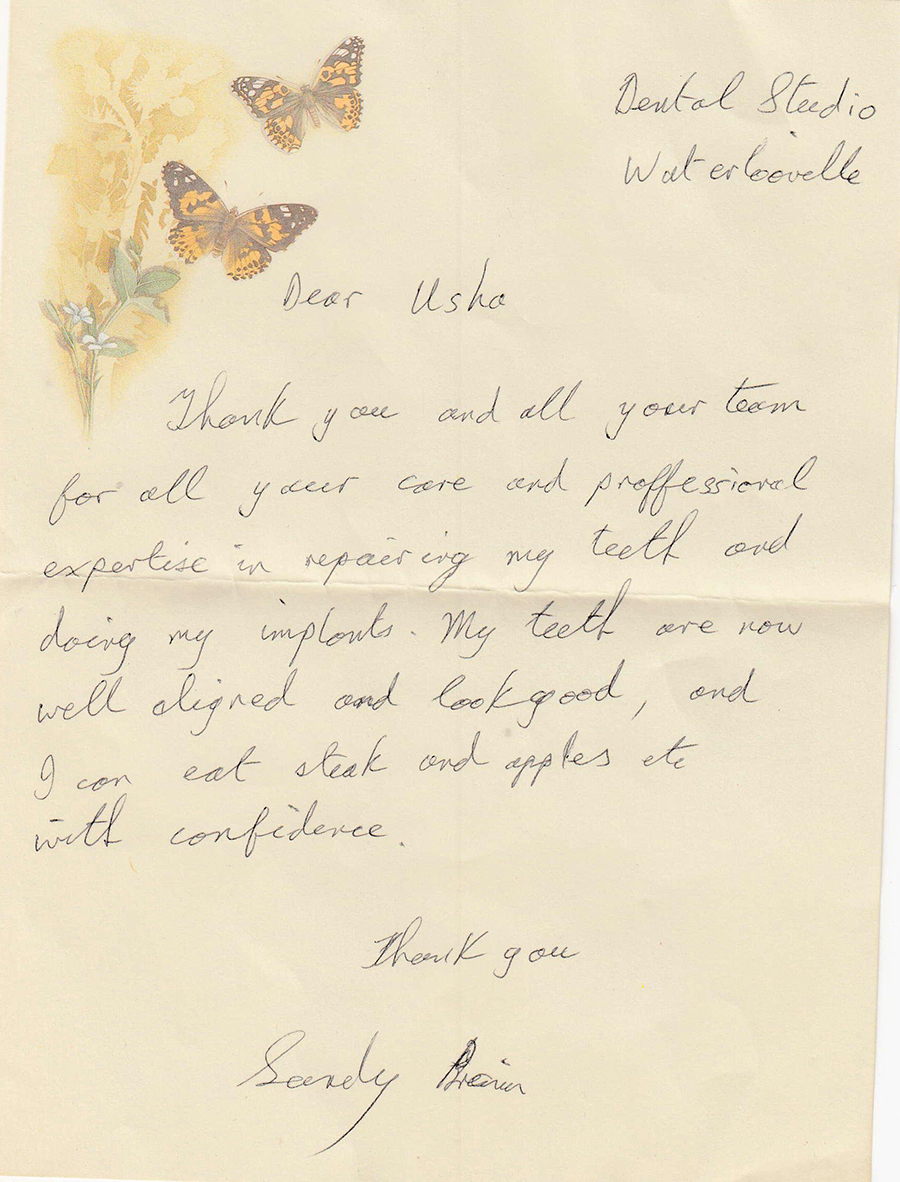 Dental Studio
Waterlooville
Dear Usha
Thank you and all your team
for all your care and proffessional
expertise in repairing my teeth and
doing my implants. My teeth are now
well aligned and look good, and
I can eat steak and apples etc
with confidence.
Thank you
Sandy